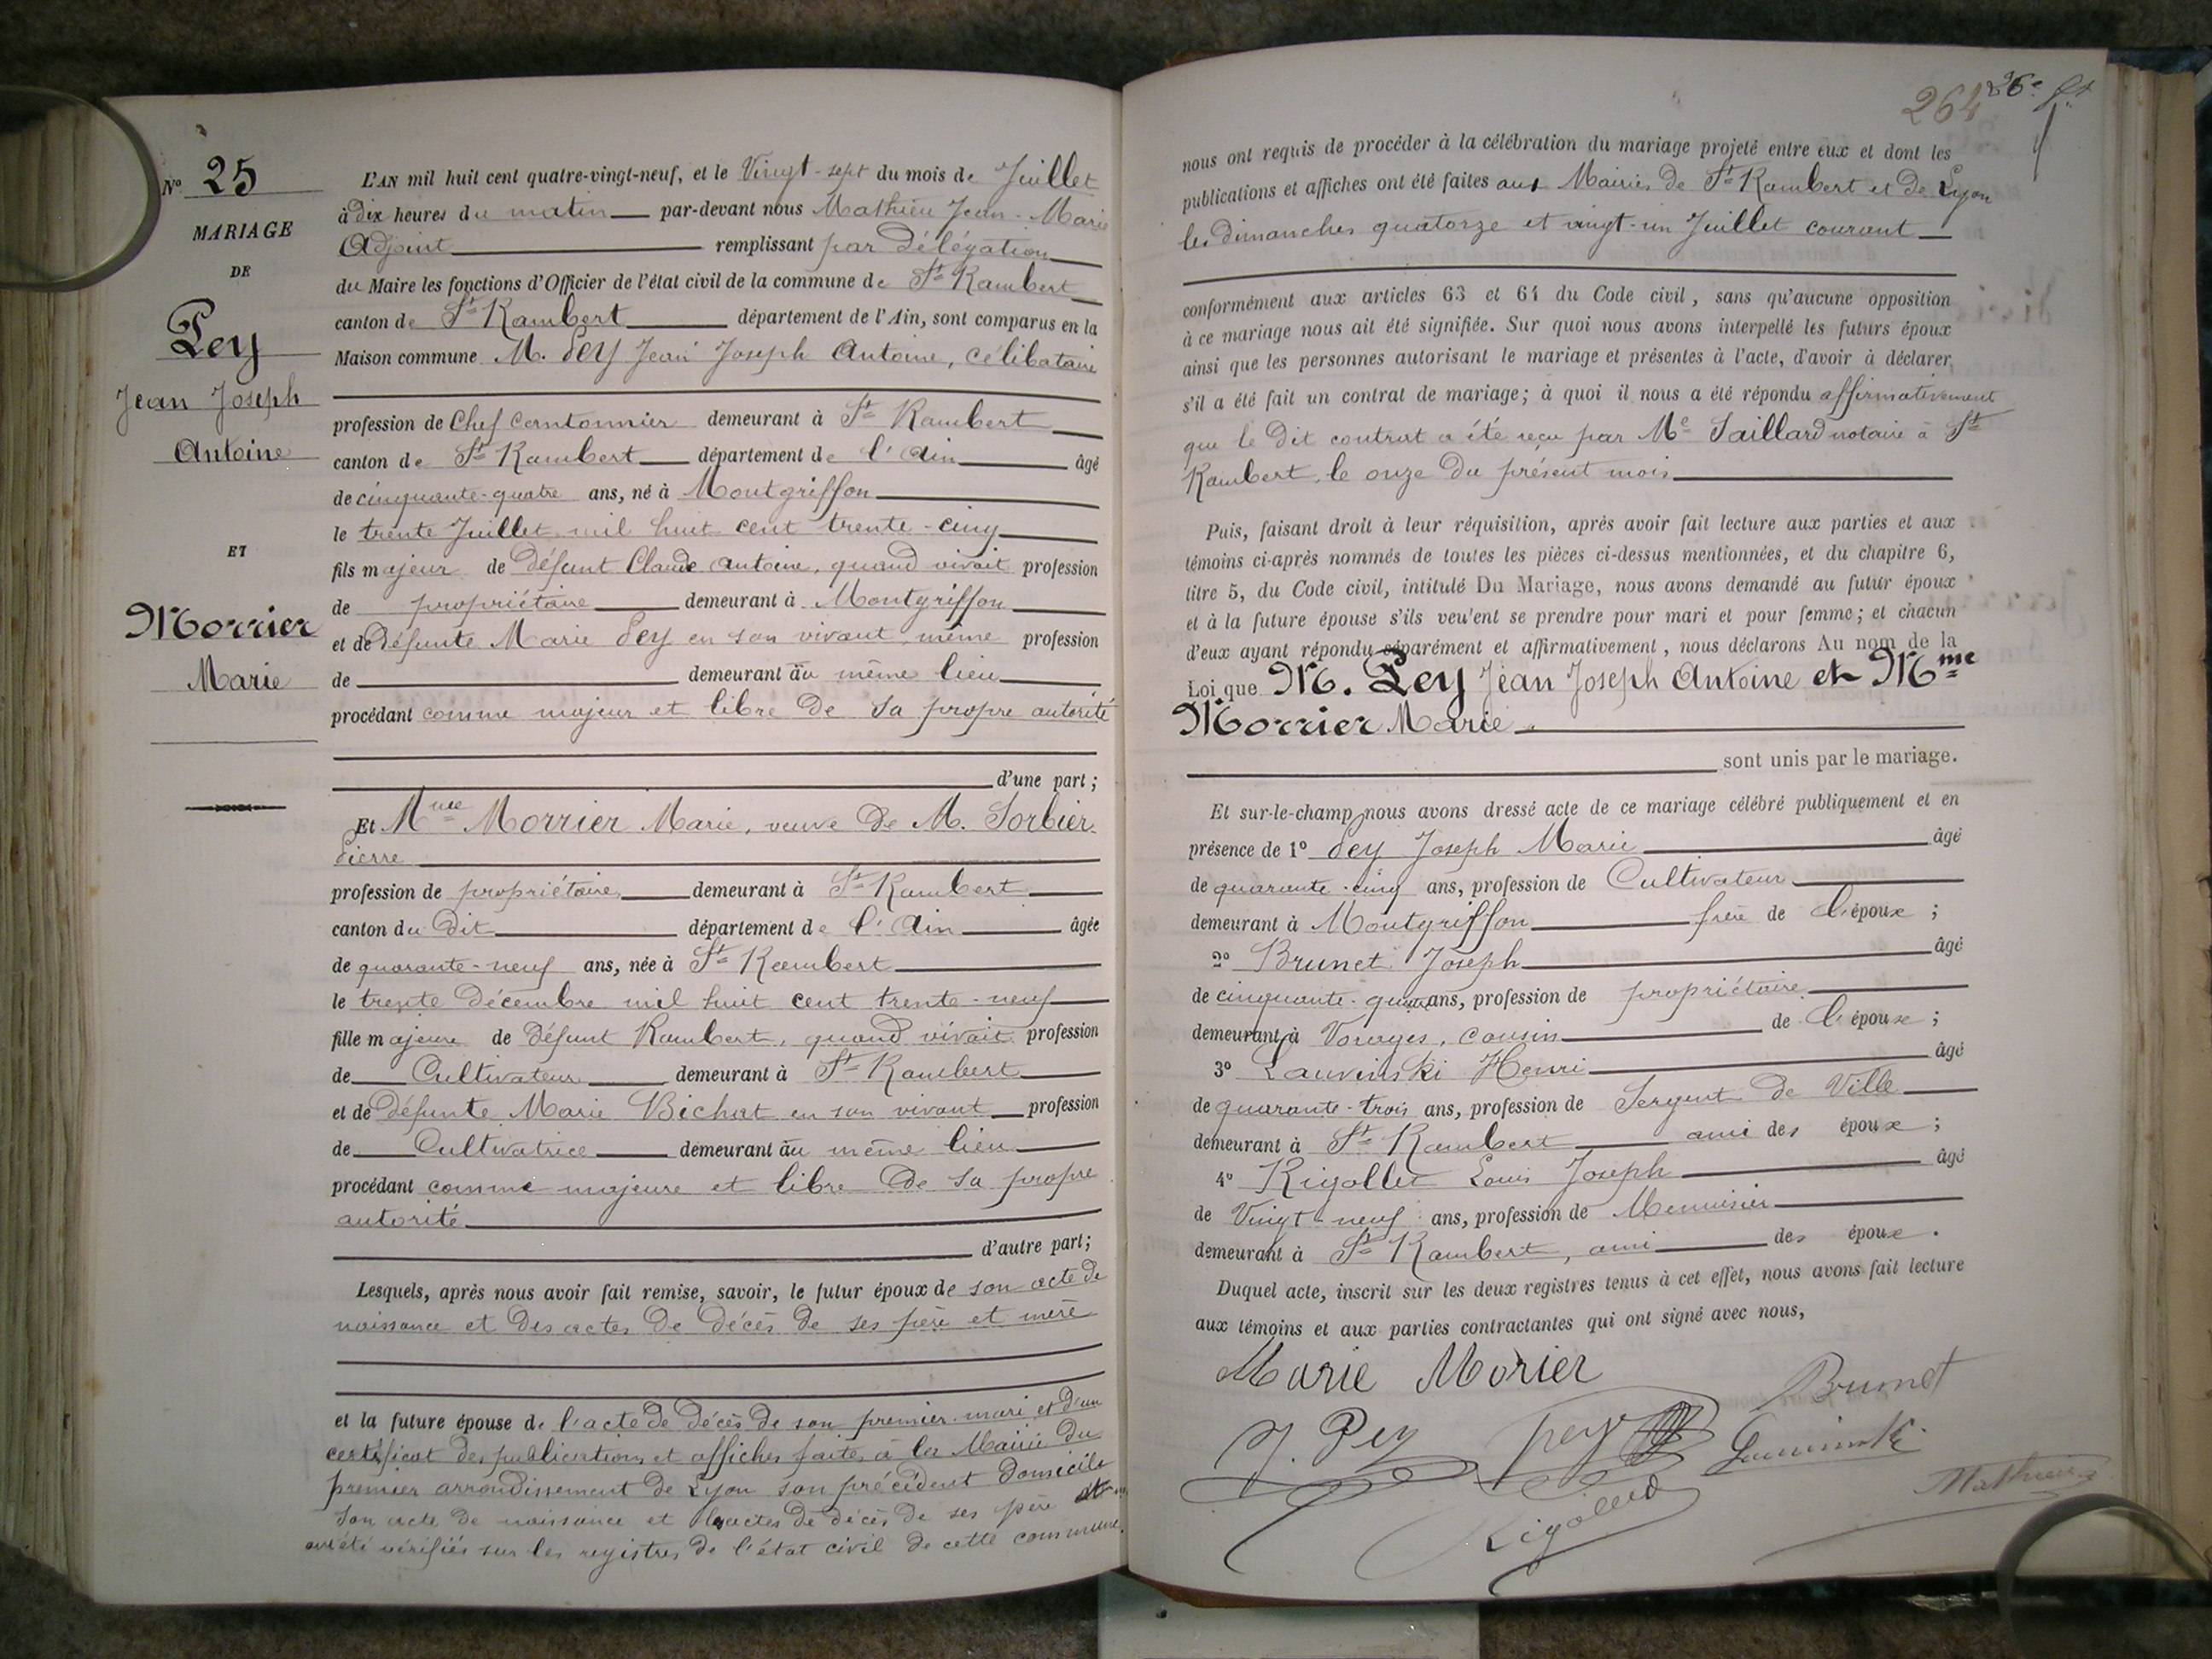 N° 25
MARIAGE
DE
Pey
Jean Joseph
Antoine
ET
Morrier
Marie
L'AN mil huit cent quatre-vingt-neuf, et le Vingt-sept du mois de Juillet
à dix heures du matin par-devant nous Mathieu Jean-Marie
Adjoint remplissant par Délégation
du Maire les fonctions d'Officier de l'état civil de la commune de St Rambert
canton de St Rambert département de l'Ain, sont comparus en la
Maison commune M. Pey Jean Joseph Antoine, Célibataire
profession de Chef Cantonnier demeurant à St Rambert
canton de St Rambert département de l'Ain âgé
de cinquante-quatre ans, né à Montgriffon
le trente Juillet mil huit cent trente-cinq
fils majeur de Défunt Claude Antoine, quand vivait profession
de propriétaire demeurant à Montgriffon
et de Défunte Marie Pey en son vivant même profession
de demeurant au même lieu
procédant comme majeur et libre de sa propre autorité
d'une part;
Et Mme Morrier Marie, veuve de M. Sorbier
Pierre
profession de propriétaire demeurant à St Rambert
canton du Dit département de l'Ain âgée
de quarante-neuf ans, née à St Rambert
le trente Décembre mil huit cent trente-neuf
fille majeure de Défunt Rambert, quand vivait profession
de Cultivateur demeurant à St Rambert
et de Défunte Marie Bichat en son vivant profession
de Cultivatrice demeurant au même lieu
procédant comme majeure et libre de sa propre
autorité
d'autre part;
Lesquels, après nous avoir fait remise, savoir, le futur époux de son acte de
naissance et des actes de décès de ses père et mère
et la future épouse de l'acte de Décès de son premier mari et d'un
certificat des publications et affiches faites à la Mairie du
premier arrondissement de Lyon son précédent domicile
Son acte de naissance et les actes de décès de ses père et
ont été vérifiés sur les registres de l'état civil de cette commune.
264 26e
nous ont requis de procéder à la célébration du mariage projeté entre eux et dont les
publications et affiches ont été faites aux Mairies de St Rambert et de Lyon
les dimanches quatorze et vingt-un Juillet courant
conformément aux articles 63 et 64 du Code civil, sans qu'aucune opposition
à ce mariage nous ait été signifiée. Sur quoi nous avons interpellé les futurs époux
ainsi que les personnes autorisant le mariage et présentes à l'acte, d'avoir à déclarer
s'il a été fait un contrat de mariage; à quoi il nous a été répondu affirmativement
que le Dit contrat a été reçu par Me Saillard notaire à St
Rambert, le onze du présent mois
Puis, faisant droit à leur réquisition, après avoir fait lecture aux parties et aux
témoins ci-après nommés de toutes les pièces ci-dessus mentionnées, et du chapitre 6,
titre 5, du Code civil, intitulé Du Mariage, nous avons demandé au futur époux
et à la future épouse s'ils veulent se prendre pour mari et pour femme; et chacun
d'eux ayant répondu séparément et affirmativement, nous déclarons Au nom de la
Loi que M. Pey Jean Joseph Antoine et Mme
Morrier Marie
sont unis par le mariage.
Et sur-le-champ nous avons dressé acte de ce mariage célébré publiquement et en
présence de 1° Pey Joseph Marie âgé
de quarante-cinq ans, profession de Cultivateur
demeurant à Montgriffon frère de l'époux;
2° Brunet Joseph âgé
de cinquante- ans, profession de propriétaire
demeurant à Vorages, cousin de l'épouse;
3° Lauvinski Henri âgé
de quarante-trois ans, profession de Sergent de Ville
demeurant à St Rambert ami des époux;
4° Rigollet Louis Joseph âgé
de Vingt-neuf ans, profession de Menuisier
demeurant à St Rambert, ami des époux.
Duquel acte, inscrit sur les deux registres tenus à cet effet, nous avons fait lecture
aux témoins et aux parties contractantes qui ont signé avec nous,
Marie Morier
Brunet
J. Pey
Pey
Rigollet
Mathieu